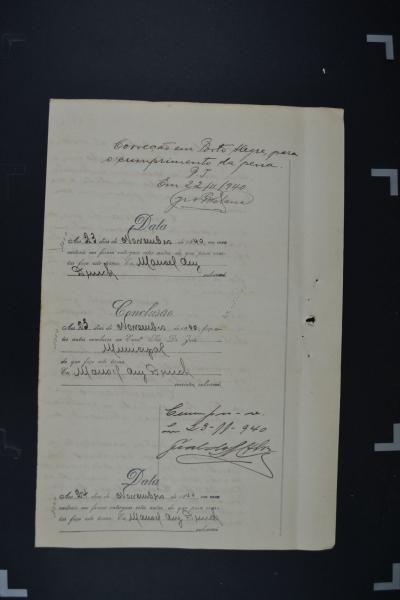 Correcção em Porto Alegre, para
o cumprimento da pena.
P. I.
Em 22/11/940
Data
Aos 23 dias de Novembro de 1940, em meu
cartorio me foram entregues estes autos, do que para cons-
tar faço este termo. Eu Manoel Aug
escrivão
Conclusão
Aos 23 dias de Novembro de 1940, faço es-
tes autos conclusos ao Exmo. Snr. Dr. Juiz
Municipal
do que faço este termo.
Eu, Manoel Aug
escrivão,
Cumpra-se.
Em 23-11-940
Data
Aos 24 dias de Novembro de 1940, em meu
cartorio me foram entregues estes autos, do que para cons-
tar faço este termo. Eu Manoel Aug